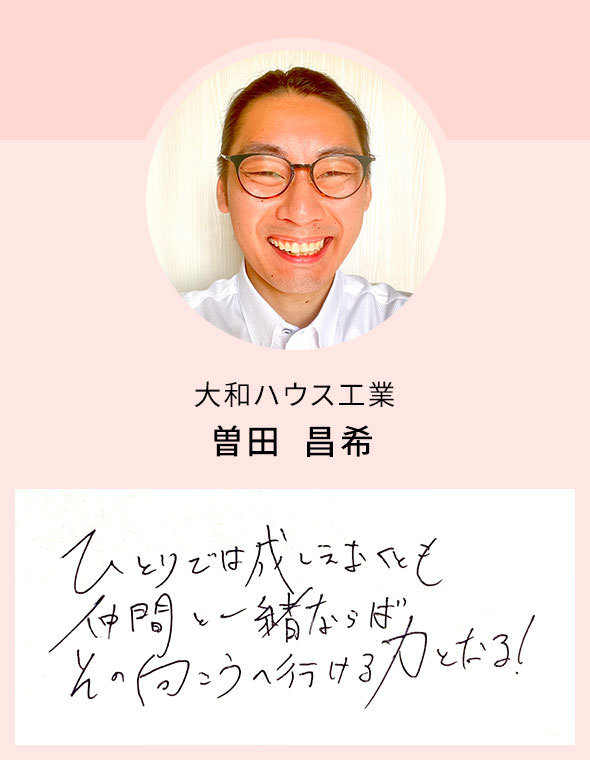 大和ハウス工業
曽田 昌希
ひとりでは成しえなくとも
仲間と一緒ならば
その向こうへ行ける力となる!